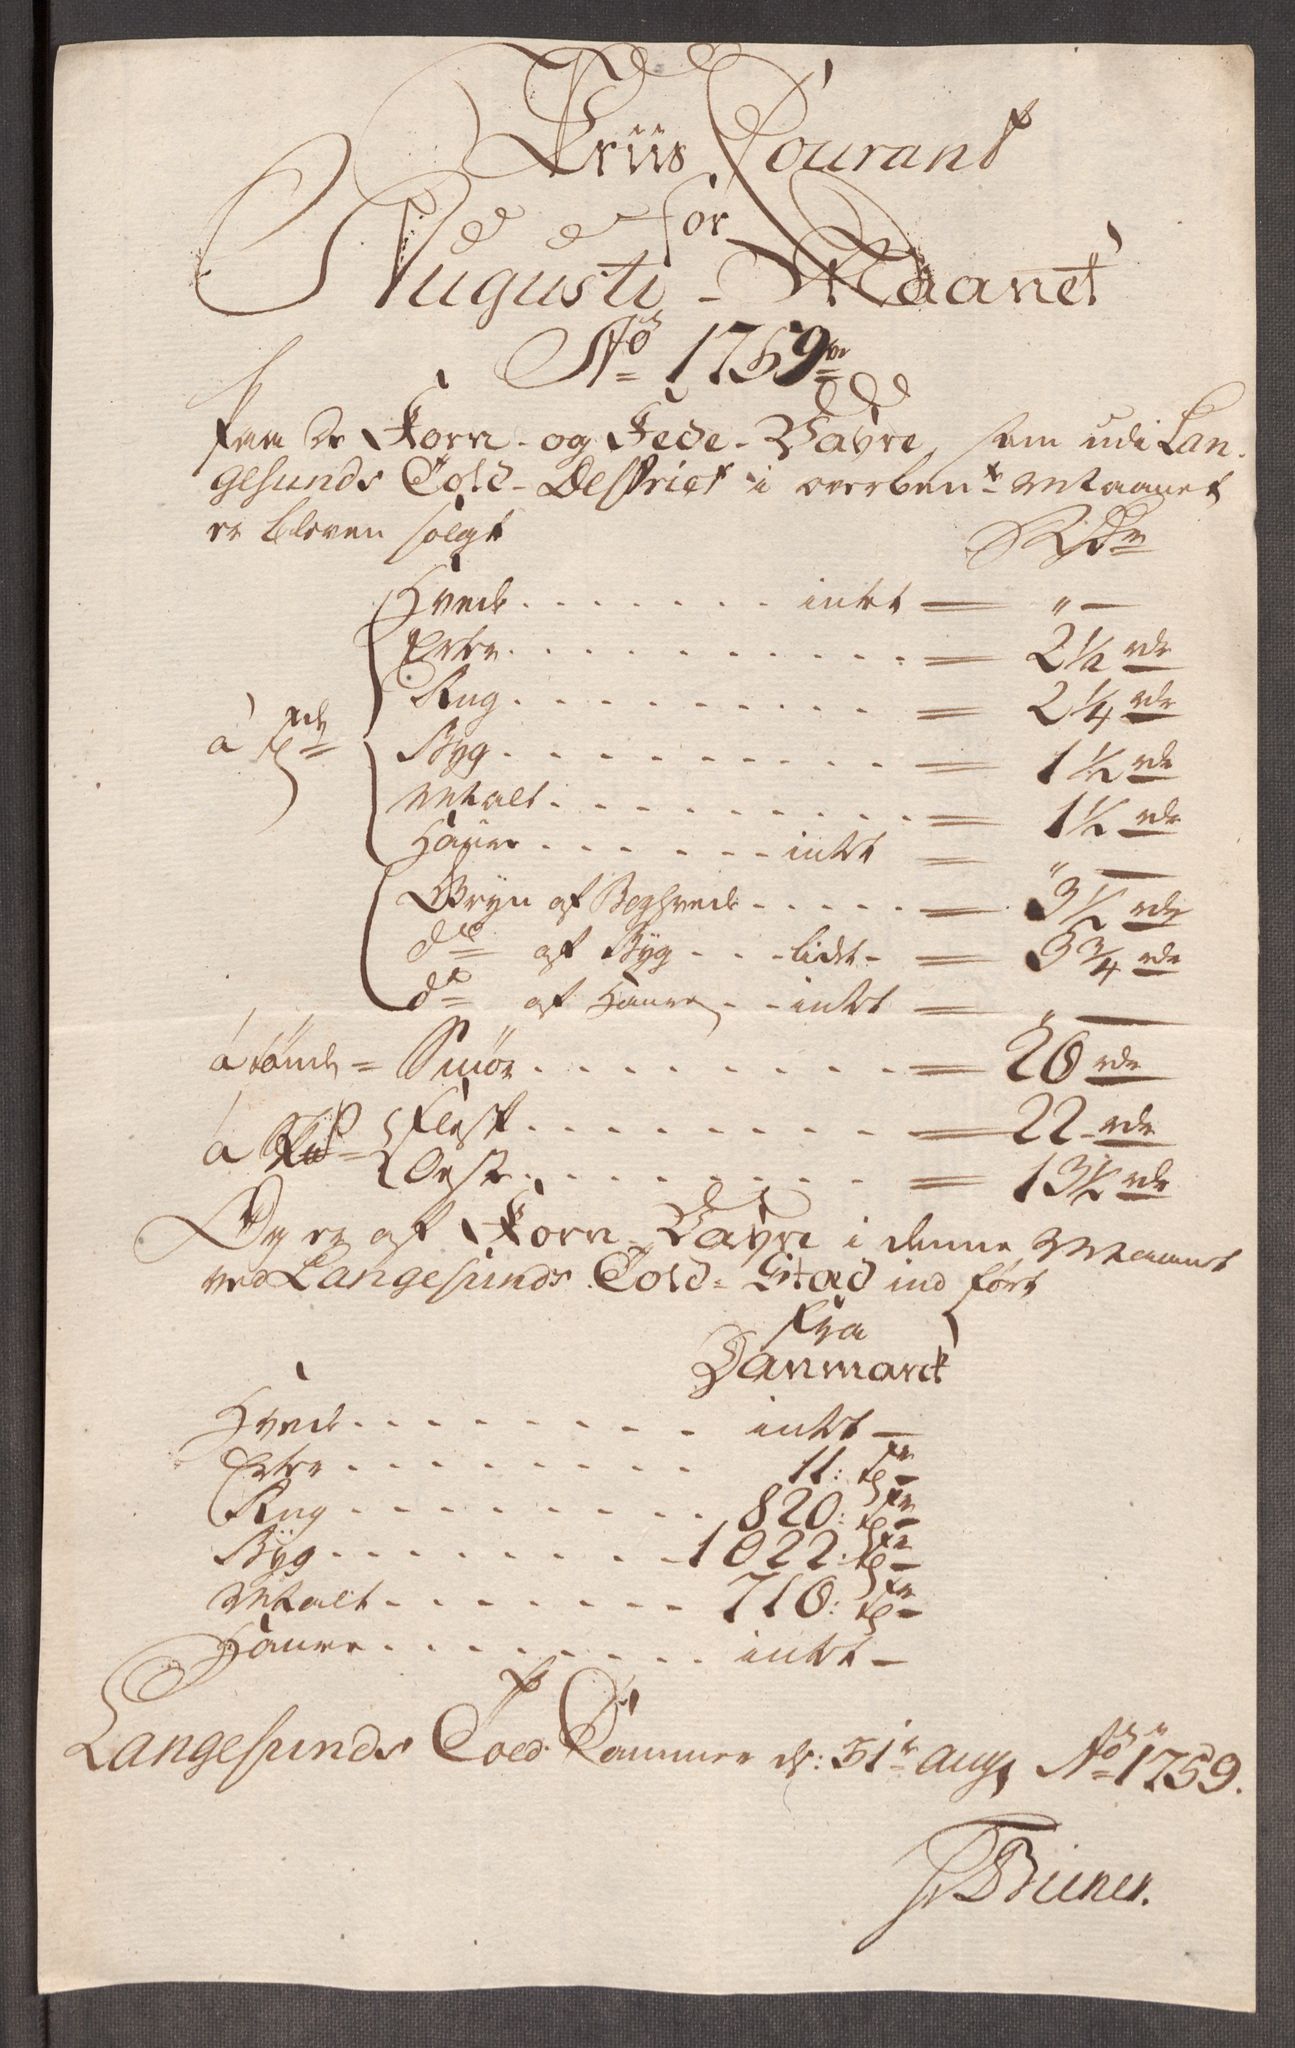 Priis Courant
for
Augusti-Maanet
Aō 1759
paa de Korn- og Fede-Vahre, som udi Lan-
gesunds Told-Destrict i overben.te Maanet
er bleven solgt
Rdr
Hvede . . . . . . . intet = " —
Erter . . . . . . . . . . = 2 1/2 rdr
Rug . . . . . . . . . . = 2 1/4 rdr
à tde
Byg . . . . . . . . . . = 1 1/2 rdr
Malt . . . . . . . . . . = 1 1/2 rdr
Haure . . . . . . intet = " —
Gryn af Boghvede . . . . . = 3 1/2 rdr
do af Byg . . . lidt - = 3 3/4 rdr
do af Haure . . intet = " —
à tønde = Smör . . . . . . . . = 20 rdr
Flesk . . . . . . . . . = 22 rdr
à
Oxe . . . . . . . . = 13 1/2 rdr
Og er af Korn-Vahre i denne Maanet
ved Langesunds Told-Stæd ind ført
fra
Danmarck
Hvede . . . . . . . . intet —
Erter . . . . . . . . . 11: tr
Rug . . . . . . . . . 820: tr
Byg . . . . . . . . . 1022: tr
Malt . . . . . . . . 710: tr
Haure . . . . . . . . intet —
Langesunds Told Cammer d: 31te aug. Aō 1759.